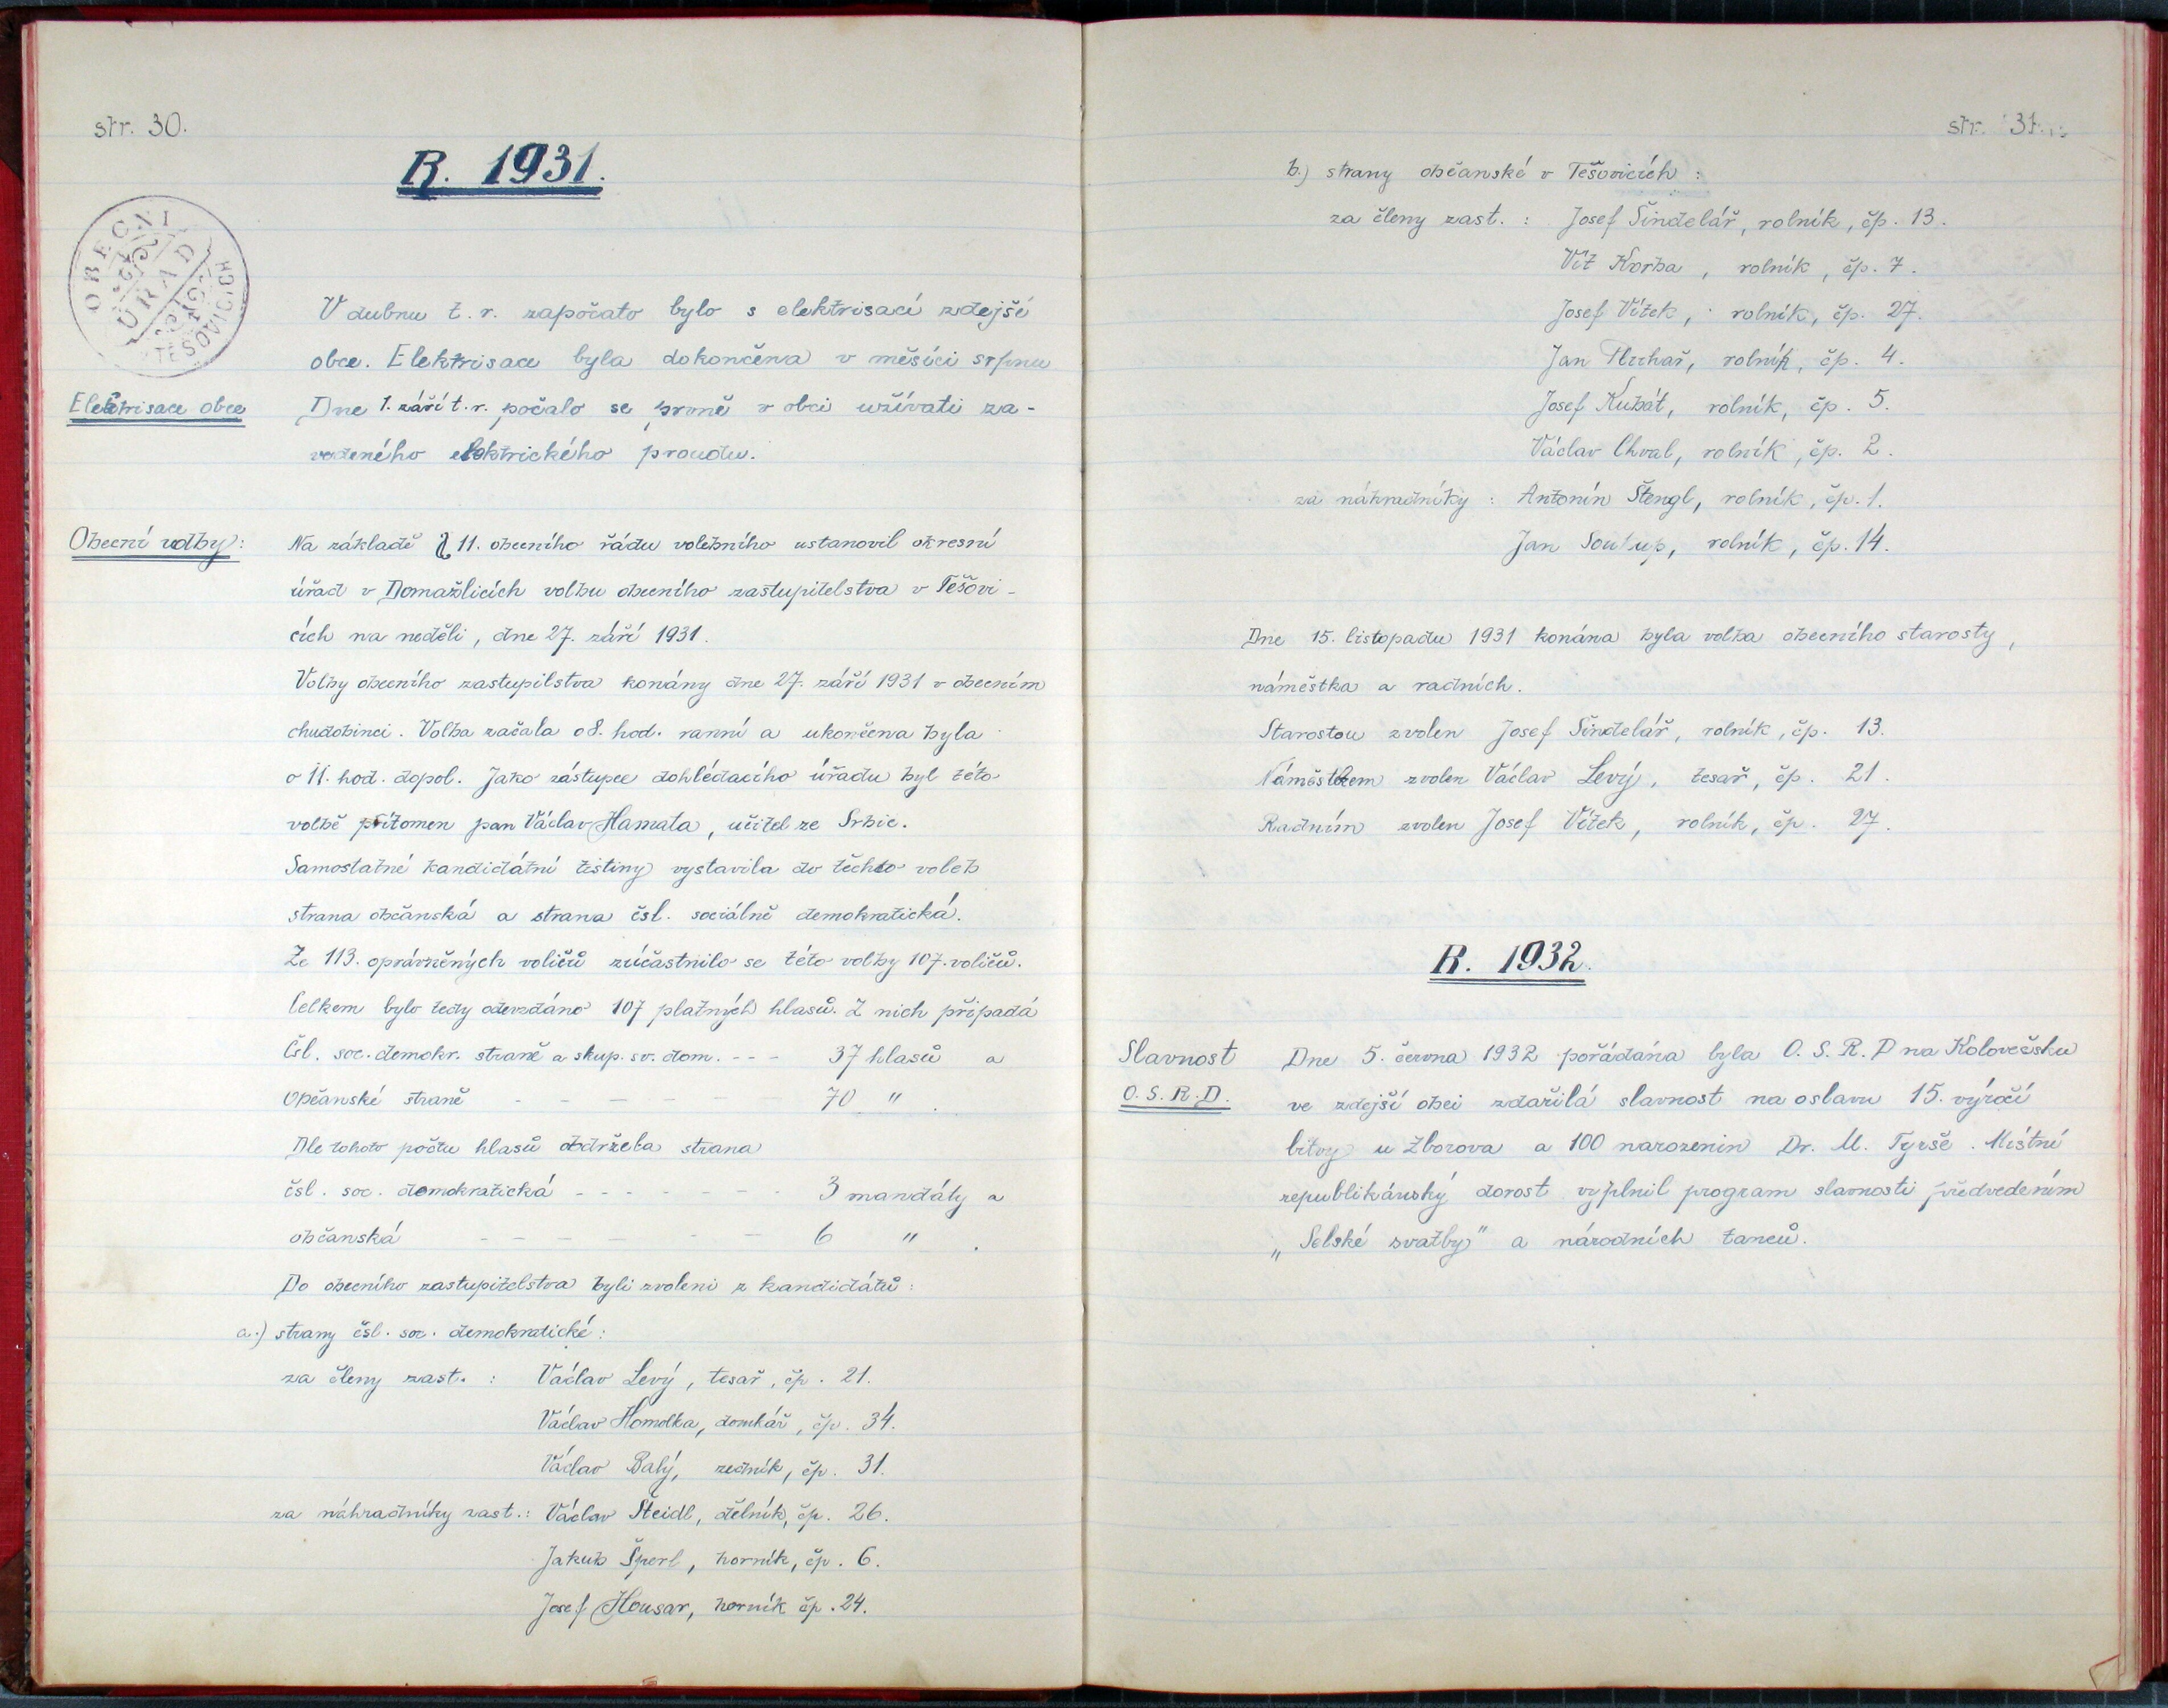 str. 30.
R. 1931.
OBECNÍ
ÚŘAD
TĚŠOVICÍCH
V dubnu t. r. započato bylo s elektrisací zdejší
obce. Elektrisace byla dokončena v měsíci srpnu
Elektrisace obce
Dne 1. září t. r. počalo se prvně v obci užívati za-
vedeného elektrického proudu.
Obecní volby:
Na základě § 11. obecního řádu volebního ustanovil okresní
úřad v Domažlicích volbu obecního zastupitelstva v Těšovi-
cích na neděli, dne 27. září 1931.
Volby obecního zastupilstva konány dne 27. září 1931 v obecním
chudobinci. Volba začala o 8. hod. ranní a ukončena byla
o 11. hod. dopol. Jako zástupce dohlédacího úřadu byl této
volbě přítomen pan Václav Hamata, učitel ze Srbic.
Samostatné kandidátní listiny vystavila do těchto voleb
strana občanská a strana čsl. sociálně demokratická.
Ze 113. oprávněných voličů zúčastnilo se této volby 107. voličů.
Celkem bylo tedy odevzdáno 107 platných hlasů. Z nich připadá
Čsl. soc. demokr. straně a skup. sv. dom. - - - 37 hlasů a
Občanské straně - - - - - - 70 " .
Dle tohoto počtu hlasů obdržela strana
čsl. soc. demokratická - - - - - - - 3 mandáty a
občanská - - - - - - - 6 " .
Do obecního zastupitelstva byli zvoleni z kandidátů:
a.) strany čsl. soc. demokratické:
za členy zast. : Václav Levý, tesař, čp. 21.
Václav Homolka, domkář, čp. 34.
Václav Balý, zedník, čp. 31.
za náhradníky zast.: Václav Šteidl, dělník, čp. 26.
Jakub Šperl, horník, čp. 6.
Josef Housar, horník čp. 24.
str. 31.
b.) strany občanské v Těšovicích:
za členy zast. : Josef Šindelář, rolník, čp. 13.
Vít Korba, rolník, čp. 7.
Josef Vítek, rolník, čp. 27.
Jan Pluhař, rolník, čp. 4.
Josef Kubát, rolník, čp. 5.
Václav Chval, rolník, čp. 2.
za náhradníky : Antonín Štengl, rolník, čp. 1.
Jan Soukup, rolník, čp. 14.
Dne 15. listopadu 1931 konána byla volba obecního starosty,
náměstka a radních.
Starostou zvolen Josef Šindelář, rolník, čp. 13.
Náměstkem zvolen Václav Levý, tesař, čp. 21.
Radním zvolen Josef Vítek, rolník, čp. 27.
R. 1932.
Slavnost
O. S. R. D.
Dne 5. června 1932 pořádána byla O. S. R. D na Kolovečsku
ve zdejší obci zdařilá slavnost na oslavu 15. výročí
bitvy u Zborova a 100 narozenin Dr. M. Tyrše. Místní
republikánský dorost vyplnil program slavnosti předvedením
„Selské svatby" a národních tanců.